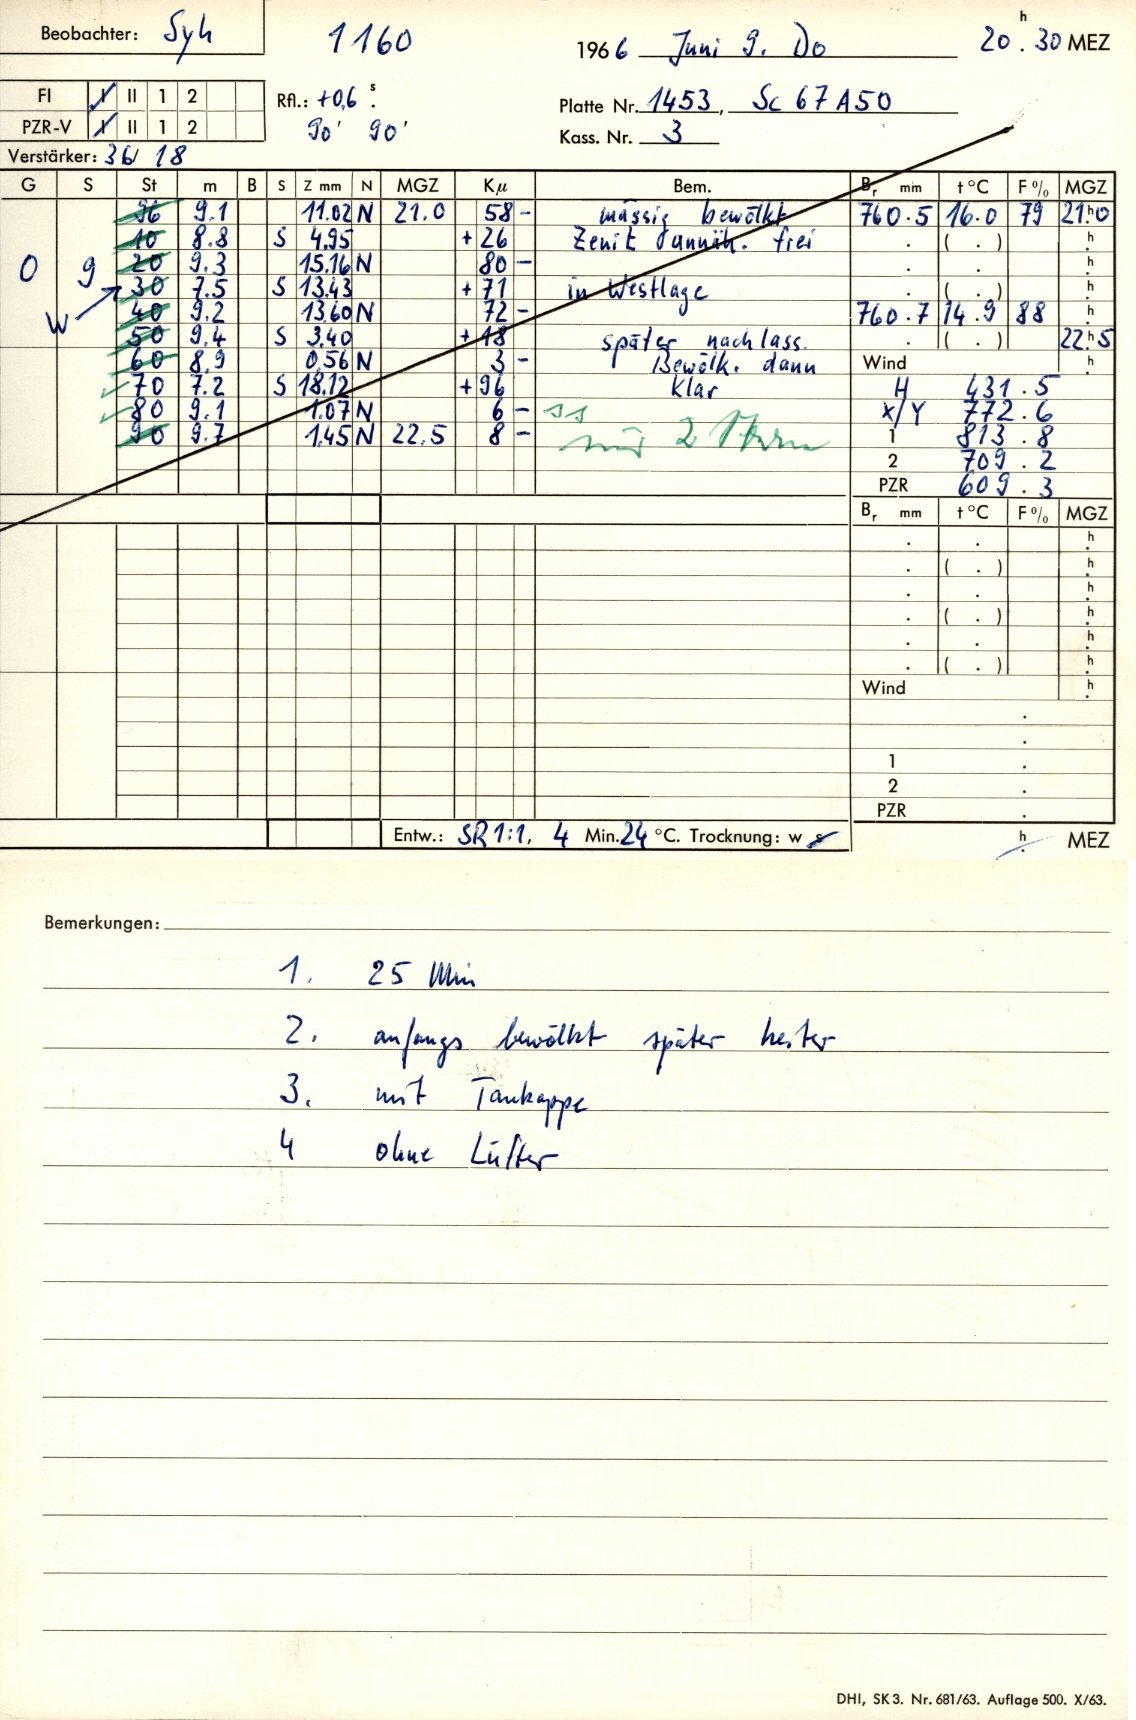 Beobachter: Syh 1160 1966 Juni 9. Do 20h.30 MEZ
FI I II 1 2 Rfl.: +0,6 s
PZR-V I II 1 2 90' 90'
Platte Nr. 1453, Sc 67 A 50
Kass. Nr. 3
Verstärker: 36/ 18
G S St m B S Z mm N MGZ Kµ Bem. Br mm t °C F % MGZ
96 9.1 11.02 N 21.0 58 – mässig bewölkt 760.5 16.0 79 21.h0
10 8.8 S 4.95 + 26 Zenit annäh. frei . ( . ) h
0 9 20 9.3 15.16 N 80 – . . h
30 7.5 S 13.43 + 71 in Westlage . ( . ) h
W 40 9.2 13.60 N 72 – 760.7 14.9 88 h
50 9.4 S 3.40 + 18 später nachlass. . ( . ) 22.h5
60 8.9 0.56 N 3 – Bewölk. dann Wind h
70 7.2 S 18.12 + 96 klar H 431.5
80 9.1 1.07 N 6 – ss X/Y 772.6
90 9.7 1.45 N 22.5 8 – nur 2 1 813.8
2 709.2
PZR 609.3
Br mm t °C F % MGZ
. . h
. ( . ) h
. . h
. ( . ) h
. . h
. ( . ) h
Wind h
.
.
1 .
2 .
PZR .
Entw.: SR 1:1, 4 Min. 24 °C. Trocknung: w s h. MEZ
Bemerkungen:
1. 25 Min
2. anfangs bewölkt später heiter
3. mit Taukappe
4 ohne Lüfter
DHI, SK 3. Nr. 681/63. Auflage 500. X/63.